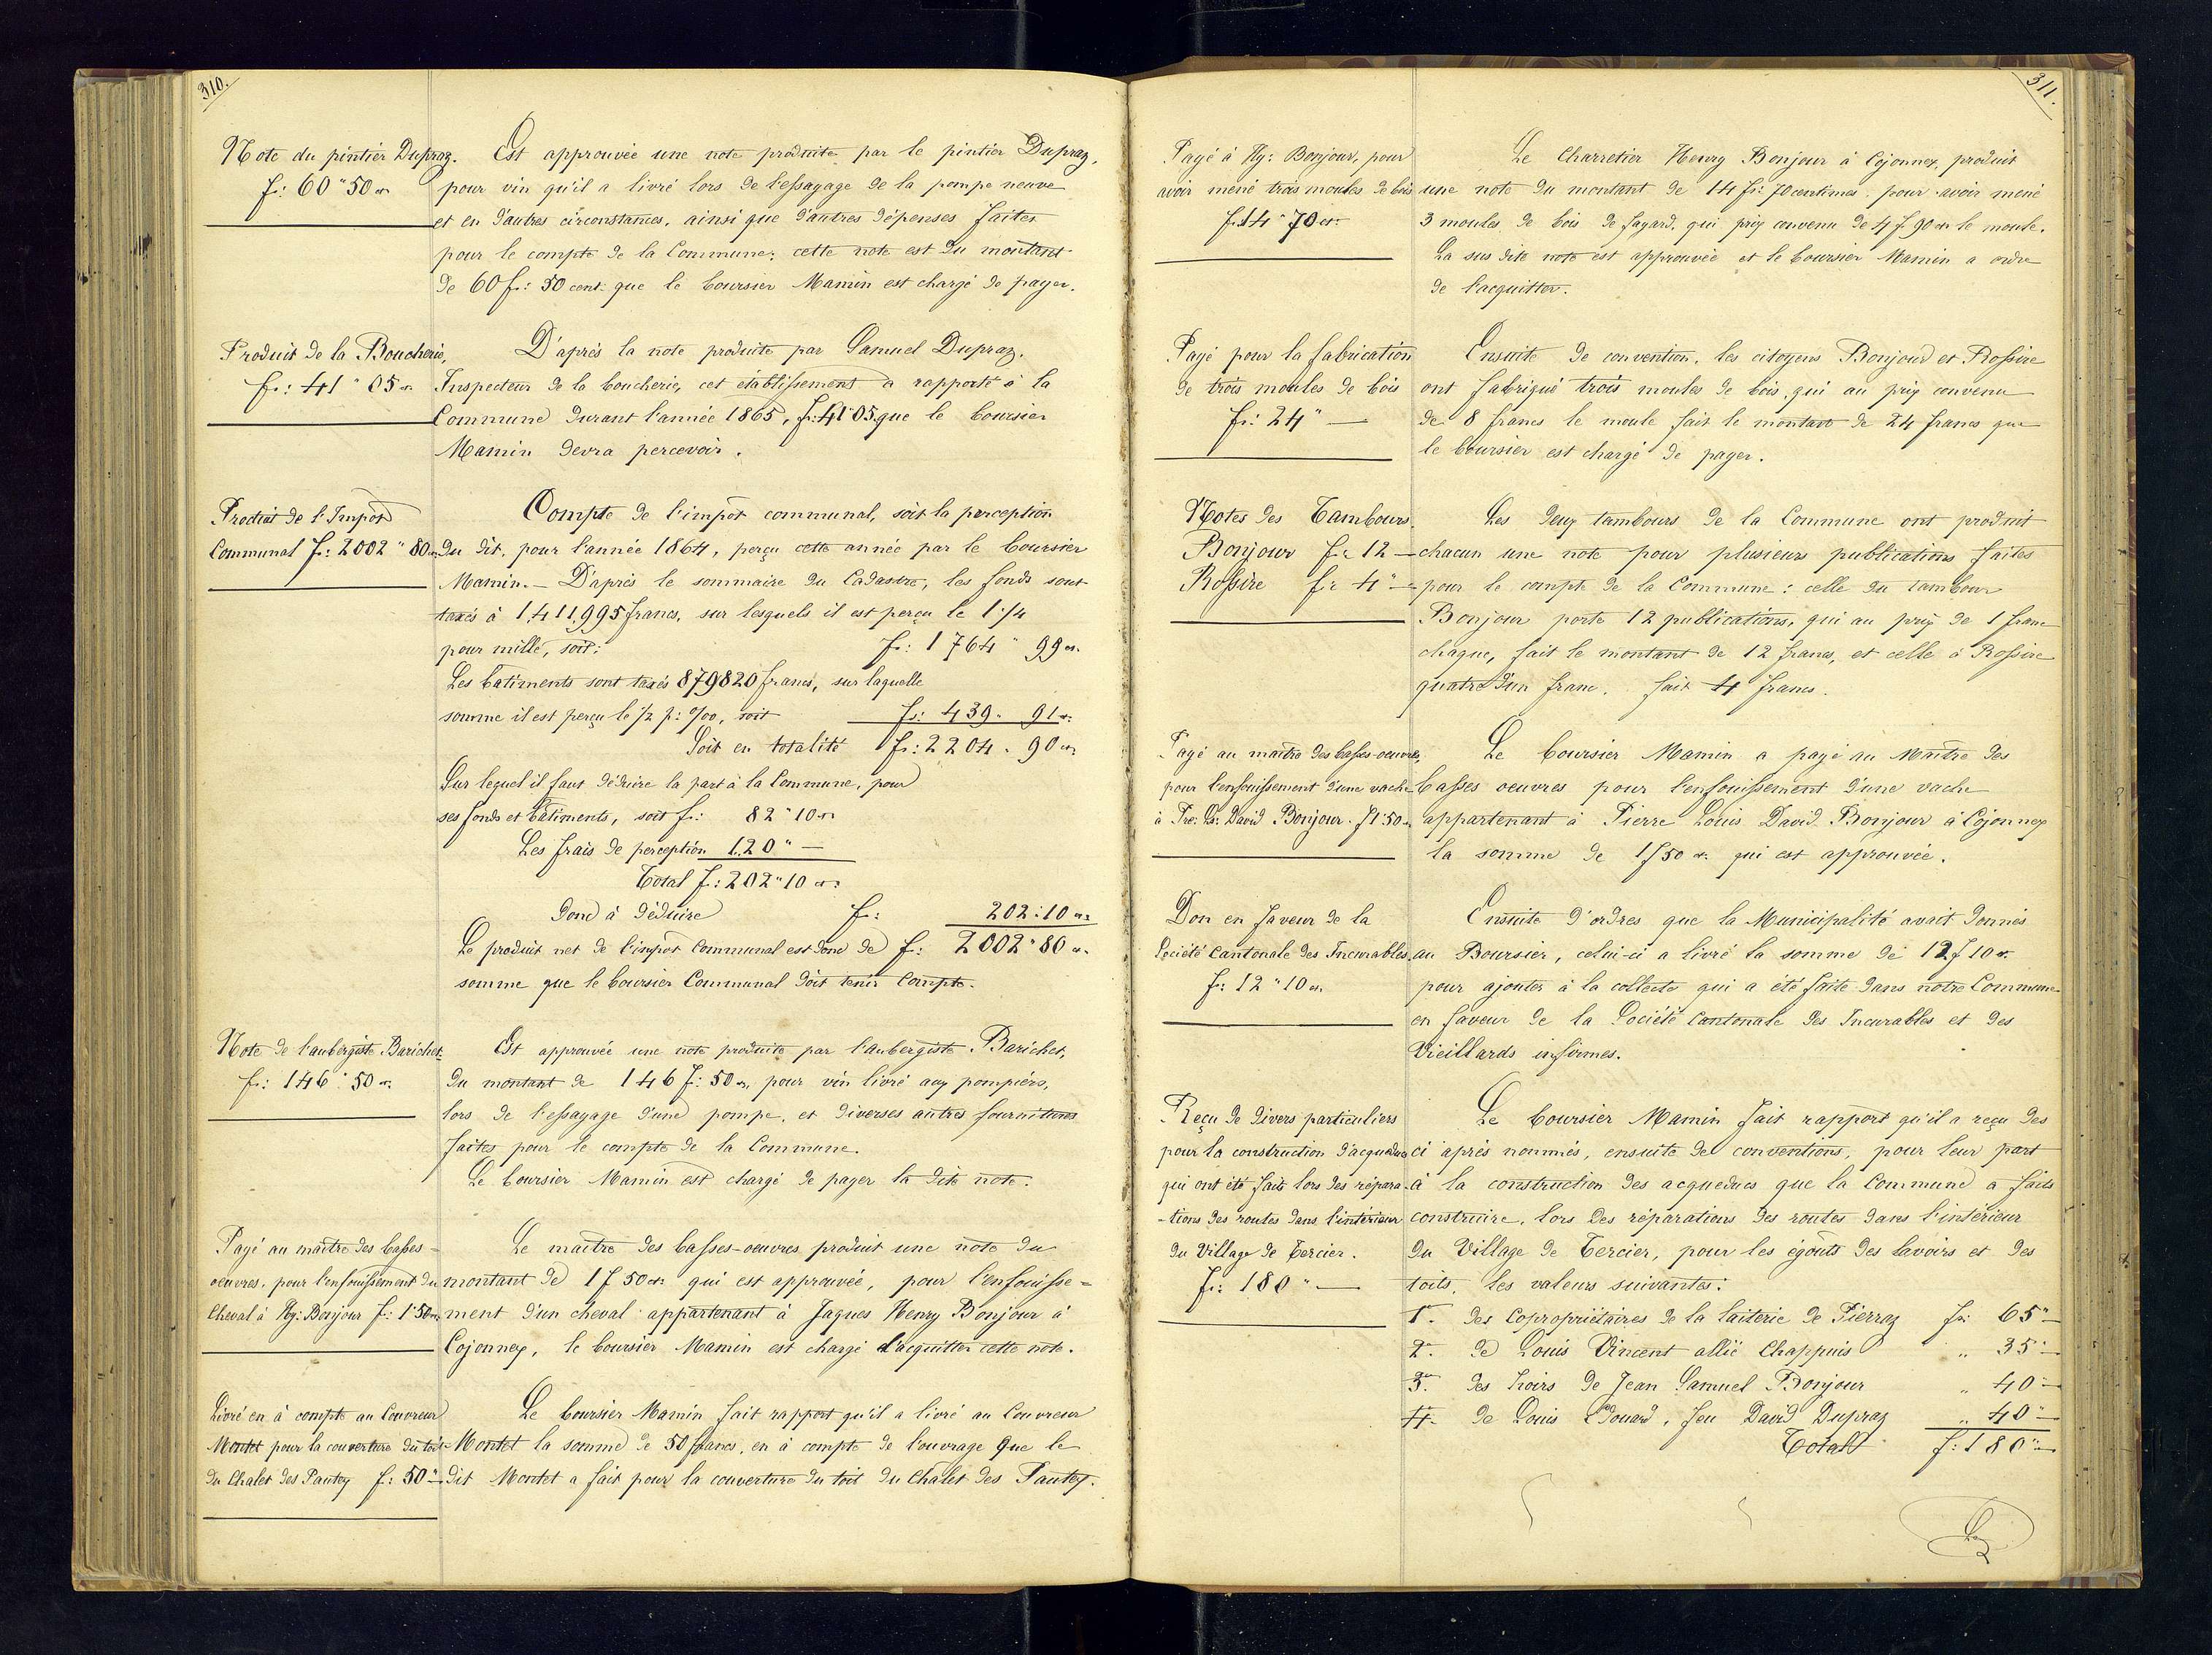 310.
Note du pintier Dupraz.
fr: 60 " 50 cs
Est approuvée une note produite par le pintier Dupraz,
pour vin qu'il a livré lors de l'essayage de la pompe neuve
et en d'autres circonstances, ainsi que d'autres dépenses faites
pour le compte de la Commune; cette note est du montant
de 60 fr: 50 cent. que le boursier Mamin est chargé de payer.
Produit de la Boucherie,
fr: 41 " 05 cs
D'après la note produite par Samuel Dupraz,
Inspecteur de la boucherie, cet établissement a rapporté à la
Commune durant l'année 1865, fr: 41 " 05 que le boursier
Mamin devra percevoir.
Produit de l'Impôt
Communal f: 2002 " 80 cs
Compte de l'impôt communal, soit la perception
du dit, pour l'année 1864, perçu cette année par le boursier
Mamin. — D'après le sommaire du Cadastre, les fonds sont
taxés à 1,411,995 francs, sur lesquels il est perçu le 1 1/4
pour mille, soit: fr: 1764 " 99 cs.
Les bâtiments sont taxés 879820 francs, sur laquelle
somme il est perçu le 1/2 p: %00, soit fr: 439 " 91 cs.
Soit en totalité fr: 2204 " 90 cs
Sur lequel il faut déduire la part à la Commune, pour
ses fonds et bâtiments, soit fr: 82 " 10 cs
Les frais de perception 120 " —
Total fr: 202 " 10 cs
Donc à déduire fr: 202 : 10 cs
Le produit net de l'impôt Communal est donc de fr: 2002 " 80 cs.
somme que le boursier Communal doit tenir Compte.
Note de l'aubergiste Barichet
fr: 146 " 50 cs
Est approuvée une note produite par l'aubergiste Barichet,
du montant de 146 f: 50 cs, pour vin livré aux pompiers,
lors de l'essayage d'une pompe, et diverses autres fournitures
faites pour le compte de la Commune.
Le boursier Mamin est chargé de payer la dite note.
Payé au maître des basses-
oeuvres, pour l'enfouissement du
Cheval à Hy: Bonjour f: 1 " 50 cs
Le maître des basses-oeuvres produit une note du
montant de 1 f 50 cs qui est approuvée, pour l'enfouisse=
ment d'un cheval appartenant à Jaques Henry Bonjour à
Cojonnex, le boursier Mamin est chargé d'acquitter cette note.
Livré en à compte au Couvreur
Montet pour la couverture du toit
du Chalet des Pautex f: 50 " —
Le boursier Mamin fait rapport qu'il a livré au Couvreur
Montet la somme de 50 francs, en à compte de l'ouvrage que le
dit Montet a fait pour la couverture du toit du Chalet des Pautex.
311.
Payé à Hy: Bonjour, pour
avoir mené trois moules de bois
fr: 14 " 70 cs
Le Charretier Henry Bonjour à Cojonnex, produit
une note du montant de 14 fr: 70 centimes pour avoir mené
3 moules de bois de fayard, qui prix convenu de 4 f 90 cs le moule.
La sus dite note est approuvée et le boursier Mamin a ordre
de l'acquitter.
Payé pour la fabrication
de trois moules de bois
fr: 24 " —
Ensuite de convention, les citoyens Bonjour et Rossire
ont fabriqué trois moules de bois, qui au prix convenu
de 8 francs le moule fait le montant de 24 francs que
le boursier est chargé de payer.
Notes des Tambours.
Bonjour fr 12 —
Rossire fr 4 " —
Les deux tambours de la Commune ont produit
chacun une note pour plusieurs publications faites
pour le compte de la Commune: celle du tambour
Bonjour porte 12 publications, qui au prix de 1 franc
chaque, fait le montant de 12 francs, et celle à Rossire
quatre d'un franc, fait 4 francs.
Payé au maître des basses-oeuvres,
pour l'enfouissement d'une vache
à Pre: Ls: David Bonjour. f 1 50 cs
Le boursier Mamin a payé au Maître des
basses oeuvres pour l'enfouissement d'une vache
appartenant à Pierre Louis David Bonjour à Cojonnex
la somme de 1 f 50 cs qui est approuvée.
Don en faveur de la
Société Cantonale des Incurables.
fr: 12 " 10 cs
Ensuite d'ordres que la Municipalité avait donnés
au Boursier, celui-ci a livré la somme de 12 f 10 cs
pour ajouter à la collecte qui a été faite dans notre Commune
en faveur de la Société Cantonale des Incurables et des
Vieillards infirmes.
Reçu de divers particuliers
pour la construction d'acqueducs
qui ont été faits lors des répara-
-tions des routes dans l'intérieur
du Village de Tercier.
fr: 180 " —
Le boursier Mamin fait rapport qu'il a reçu des
ci après nommés, ensuite de conventions, pour leur part
à la construction des acqueducs que la Commune a faits
construire, lors des réparations des routes dans l'intérieur
du Village de Tercier, pour les égoûts des lavoirs et des
toits, les valeurs suivantes:
1° des Copropriétaires de la laiterie de Pierraz fr: 65 " —
2° de Louis Vincent allié Chappuis " 35 " —
3° des hoirs de Jean Samuel Bonjour " 40 " —
4° de Louis Edouard, feu David Dupraz " 40 " —
Total fr: 180 " —